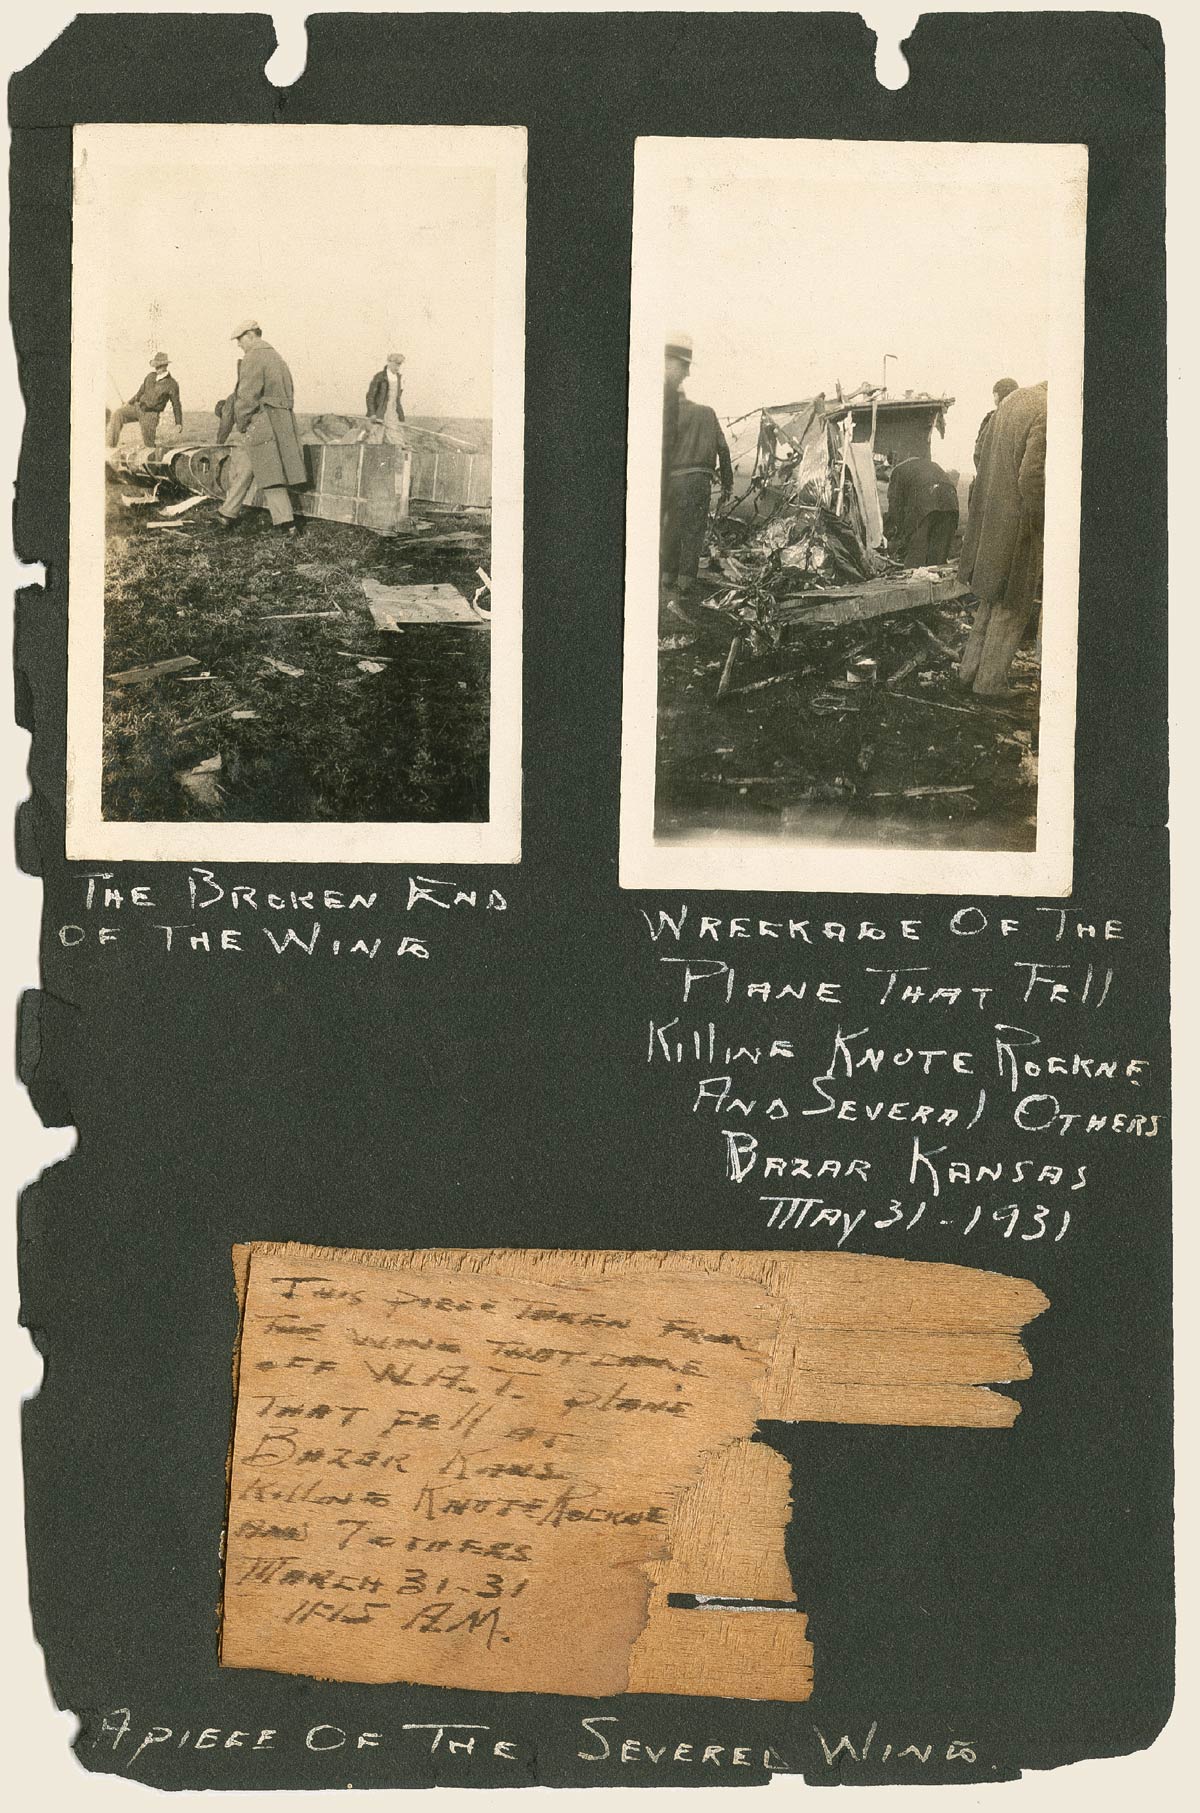 THE BROKEN END
OF THE WING
WRECKAGE OF THE
PLANE THAT FEll
KIllING KNOTE ROCKNE
AND SEVERAl OTHERS
BAZAR KANSAS
MAY 31-1931
THIS PIECE TAKEN FROM
THE WING THAT CAME
OFF W.A.T. PlANE
THAT FEll AT
BAZER KANS
KIllING KNOTE ROCKNE
AND 7 OTHERS
MARCH 31-31
11-15 A.M.
A PIECE OF THE SEVERED WING.